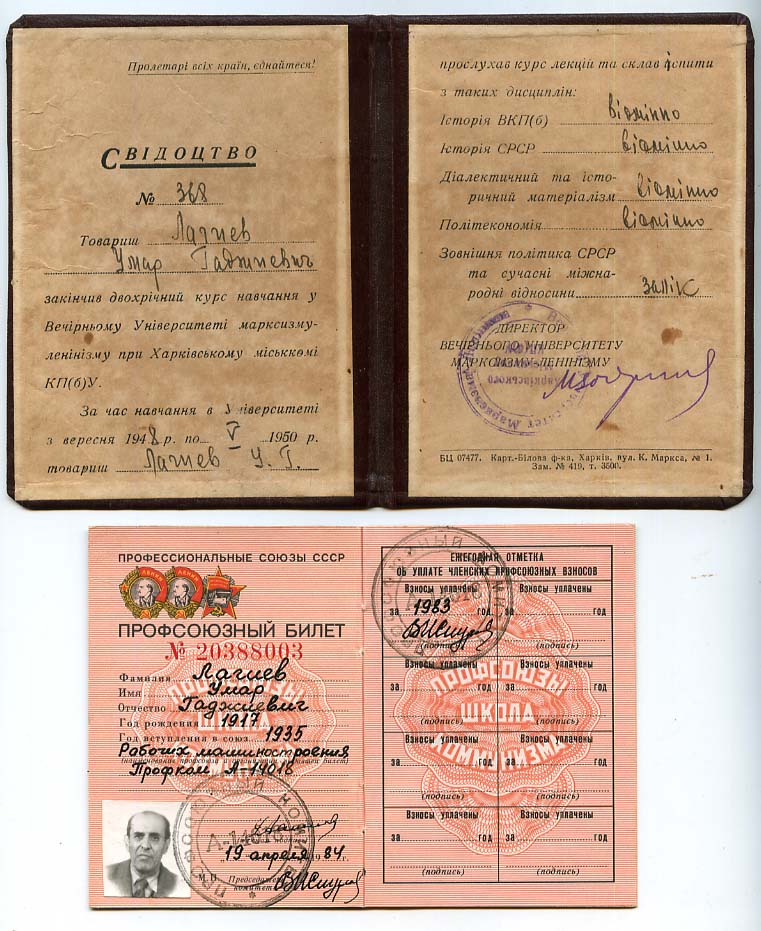 Пролетарі всіх країн, єднайтеся!
СВІДОЦТВО
№ 368
Товариш Лагиев
Умар Гаджиевич
закінчив двохрічний курс навчання у
Вечірньому Університеті марксизму-
ленінізму при Харківському міськкомі
КП(б)У.
За час навчання в Університеті
з вересня 1948 р. по V 1950 р.
товариш Лагиев У. Г.
прослухав курс лекцій та склав іспити
з таких дисциплін:
Історія ВКП(б) відмінно
Історія СРСР відмінно
Діалектичний та істо-
ричний матеріалізм відмінно
Політекономія відмінно
Зовнішня політика СРСР
та сучасні міжна-
родні відносини залік
ДИРЕКТОР
ВЕЧІРНЬОГО УНІВЕРСИТЕТУ
МАРКСИЗМУ-ЛЕНІНІЗМУ
БЦ 07477. Карт.-Білова ф-ка, Харків, вул. К. Маркса, № 1.
Зам. № 419, т. 3500.
ПРОФЕССИОНАЛЬНЫЕ СОЮЗЫ СССР
ПРОФСОЮЗНЫЙ БИЛЕТ
№ 20388003
Фамилия Лагиев
Имя Умар
Отчество Гаджиевич
Год рождения 1917
Год вступления в союз 1935
Рабочих машиностроения
Профком А-14018
19 апреля 1984 г.
М.П. Председатель
комитета
ЕЖЕГОДНАЯ ОТМЕТКА
ОБ УПЛАТЕ ЧЛЕНСКИХ ПРОФСОЮЗНЫХ ВЗНОСОВ
Взносы уплачены Взносы уплачены
за 1983 год за год
(подпись) (подпись)
Взносы уплачены Взносы уплачены
за год за год
(подпись) (подпись)
Взносы уплачены Взносы уплачены
за год за год
(подпись) (подпись)
Взносы уплачены Взносы уплачены
за год за год
(подпись) (подпись)
ПРОФСОЮЗЫ
ШКОЛА
КОММУНИЗМА